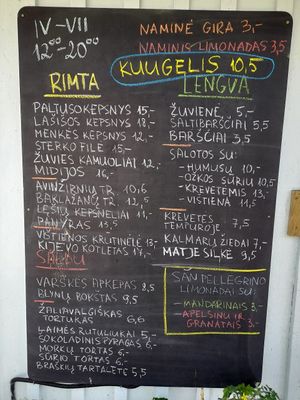 IV-VII
12:00-20:00
NAMINĖ GIRA 3,-
NAMINIS LIMONADAS 3,5
KUUGELIS 10,5
RIMTA
PALTUSO KEPSNYS 15,-
LAŠIŠOS KEPSNYS 13,-
MENKĖS KEPSNYS 12,-
STERKO FILE 15,-
ŽUVIES KAMUOLIAI 12,-
MIDIJOS 16,-
AVINŽIRNIŲ TR. 10,6
BAKLAŽANŲ TR. 12,5
LĘŠIŲ KEPSNELIAI
PANYRAS 13,5
VIŠTIENOS KRŪTINĖLĖ 13,-
KIJEVO KOTLETAS 14,-
SALDU
VARŠKĖS APKEPAS 8,5
BLYNŲ BOKŠTAS 9,5
ŽALIAVALGIŠKAS
TORTUKAS 6,6
LAIMĖS RUTULIUKAI 5,-
ŠOKOLADINIS PYRAGAS 6,-
MORKŲ TORTAS 6,-
SŪRIO TORTAS 6,-
BRAŠKIŲ TARTALETĖ 5,5
LENGVA
ŽUVIENĖ 5,-
ŠALTIBARŠČIAI 5,5
BARŠČIAI 3,5
SALOTOS SU:
- HUMUSU 10,-
- OŽKOS SŪRIU 10,5
- KREVETĖMIS 13,-
- VIŠTIENA 11,5
KREVETĖS
TEMPŪROJE 7,5
KALMARŲ ŽIEDAI 7,-
MATJE SILKĖ 9,5
SAN PELLEGRINO
LIMONADAI SU:
- MANDARINAIS 3,-
- APELSINU IR
GRANATAIS 3,-